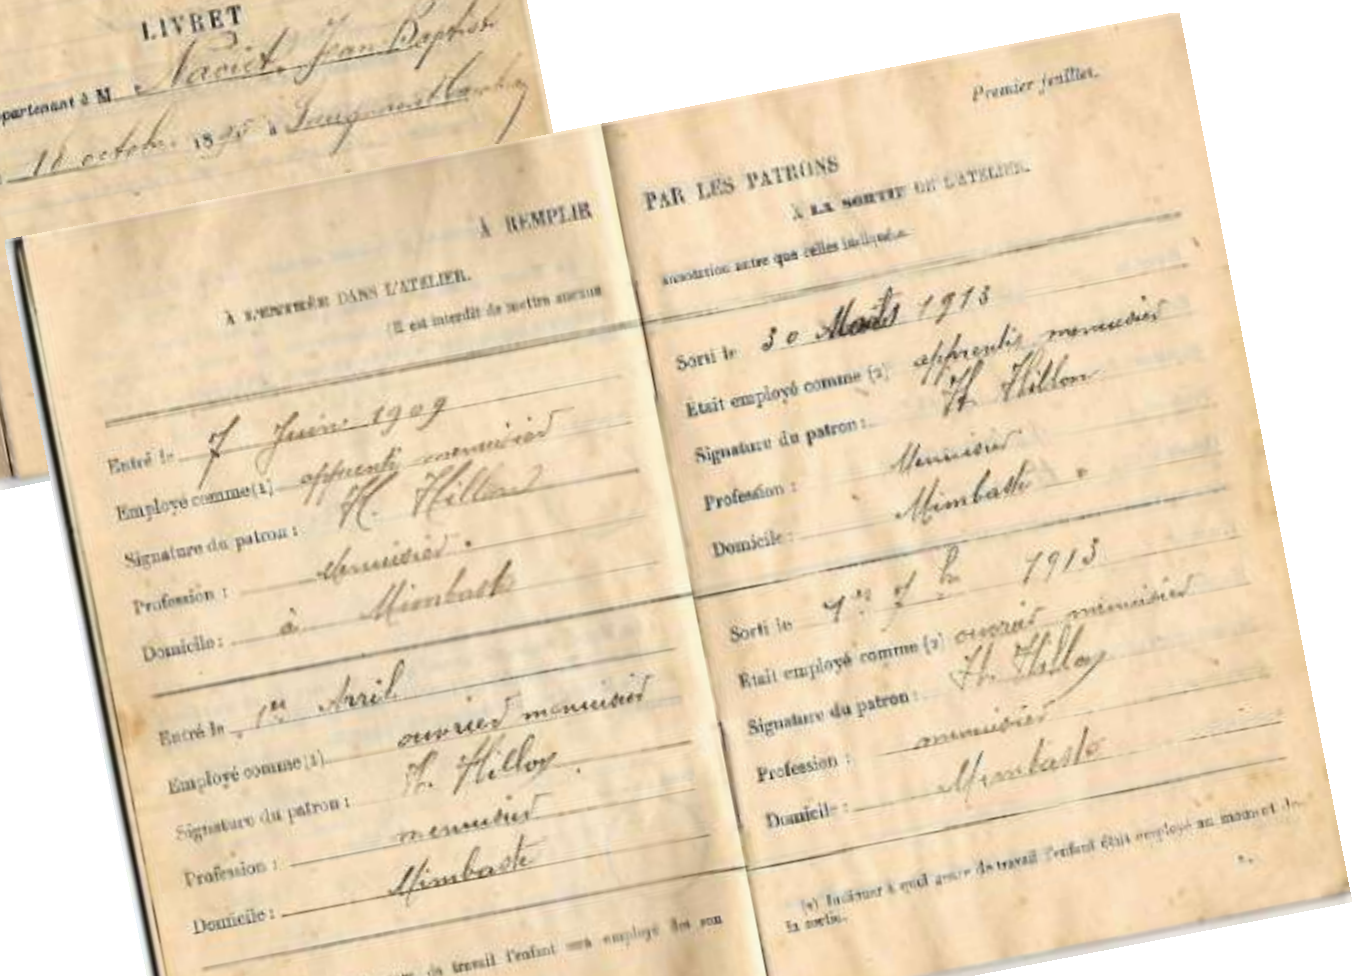 LIVRET
partenant à M. Jean Baptiste
octob. 18 à
À REMPLIR
À L'ENTRÉE DANS L'ATELIER.
(Il est interdit de mettre aucune
Entré le 7 Juin 1909
Employé comme (1) apprenti menuisier
Signature du patron : H.
Profession : Menuisier.
Domicile : à Mimbaste
Entré le 1er Avril
Employé comme (1) ouvrier menuisier
Signature du patron : H.
Profession : menuisier
Domicile : Mimbaste
de travail l'enfant sera employé dès son
Premier feuillet.
PAR LES PATRONS
À LA SORTIE DE L'ATELIER.
annotation autre que celles indiquées.
Sorti le 30 1913
Etait employé comme (2) apprentis menuisier
Signature du patron : H.
Profession : Menuisier
Domicile : Mimbaste
Sorti le 1913
Etait employé comme (2) ouvrier menuisier
Signature du patron : H.
Profession :
Domicile : Mimbaste
(2) Indiquer à quel genre de travail l'enfant était employé au moment de
la sortie.